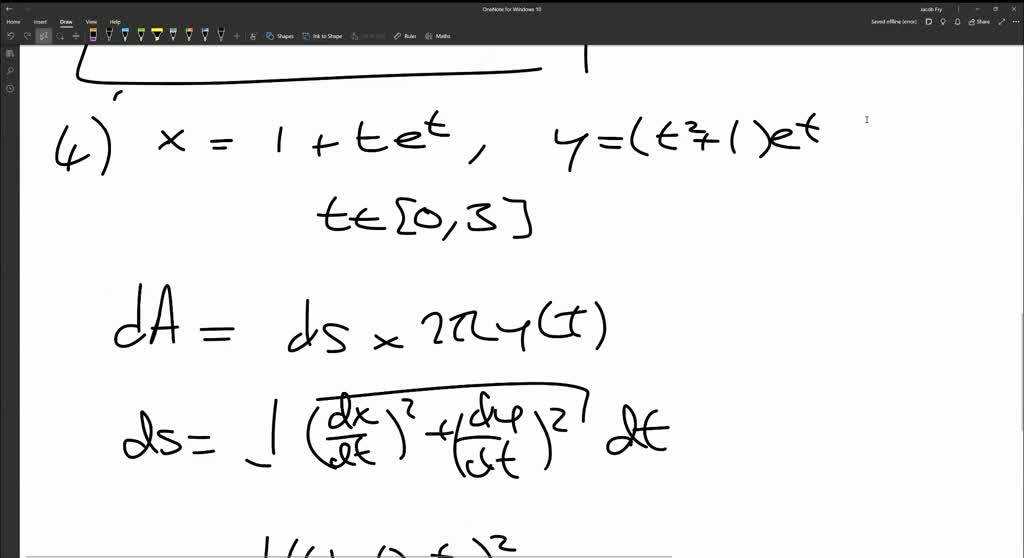 OneNote for Windows 10
Jacob Fry
Home Insert Draw View Help
Saved offline (error) Share
Shapes Ink to Shape Ruler Maths
4) x = 1 + te^t, y = (t²+1)e^t
t∈[0,3]
dA = ds × 2πy(t)
ds = √((dx/dt)² + (dy/dt)²) dt